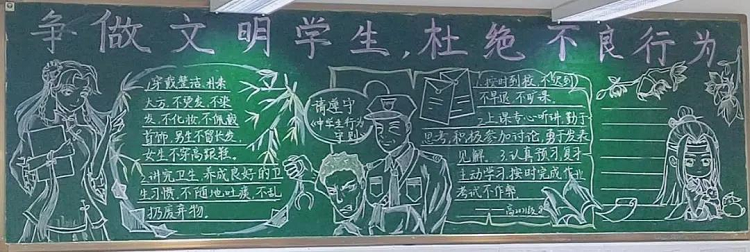 争做文明学生,杜绝不良行为
1.穿戴整洁、朴素
大方,不烫发,不染
发,不化妆,不佩戴
首饰,男生不留长发,
女生不穿高跟鞋。
2.讲究卫生,养成良好的卫
生习惯,不随地吐痰,不乱
扔废弃物。
请遵守
《中学生行为
守则》
1.按时到校,不迟到
不早退,不旷课。
2.上课专心听讲,勤于
思考,积极参加讨论,勇于发表
见解。3.认真预习、复习
主动学习,按时完成作业
考试不作弊